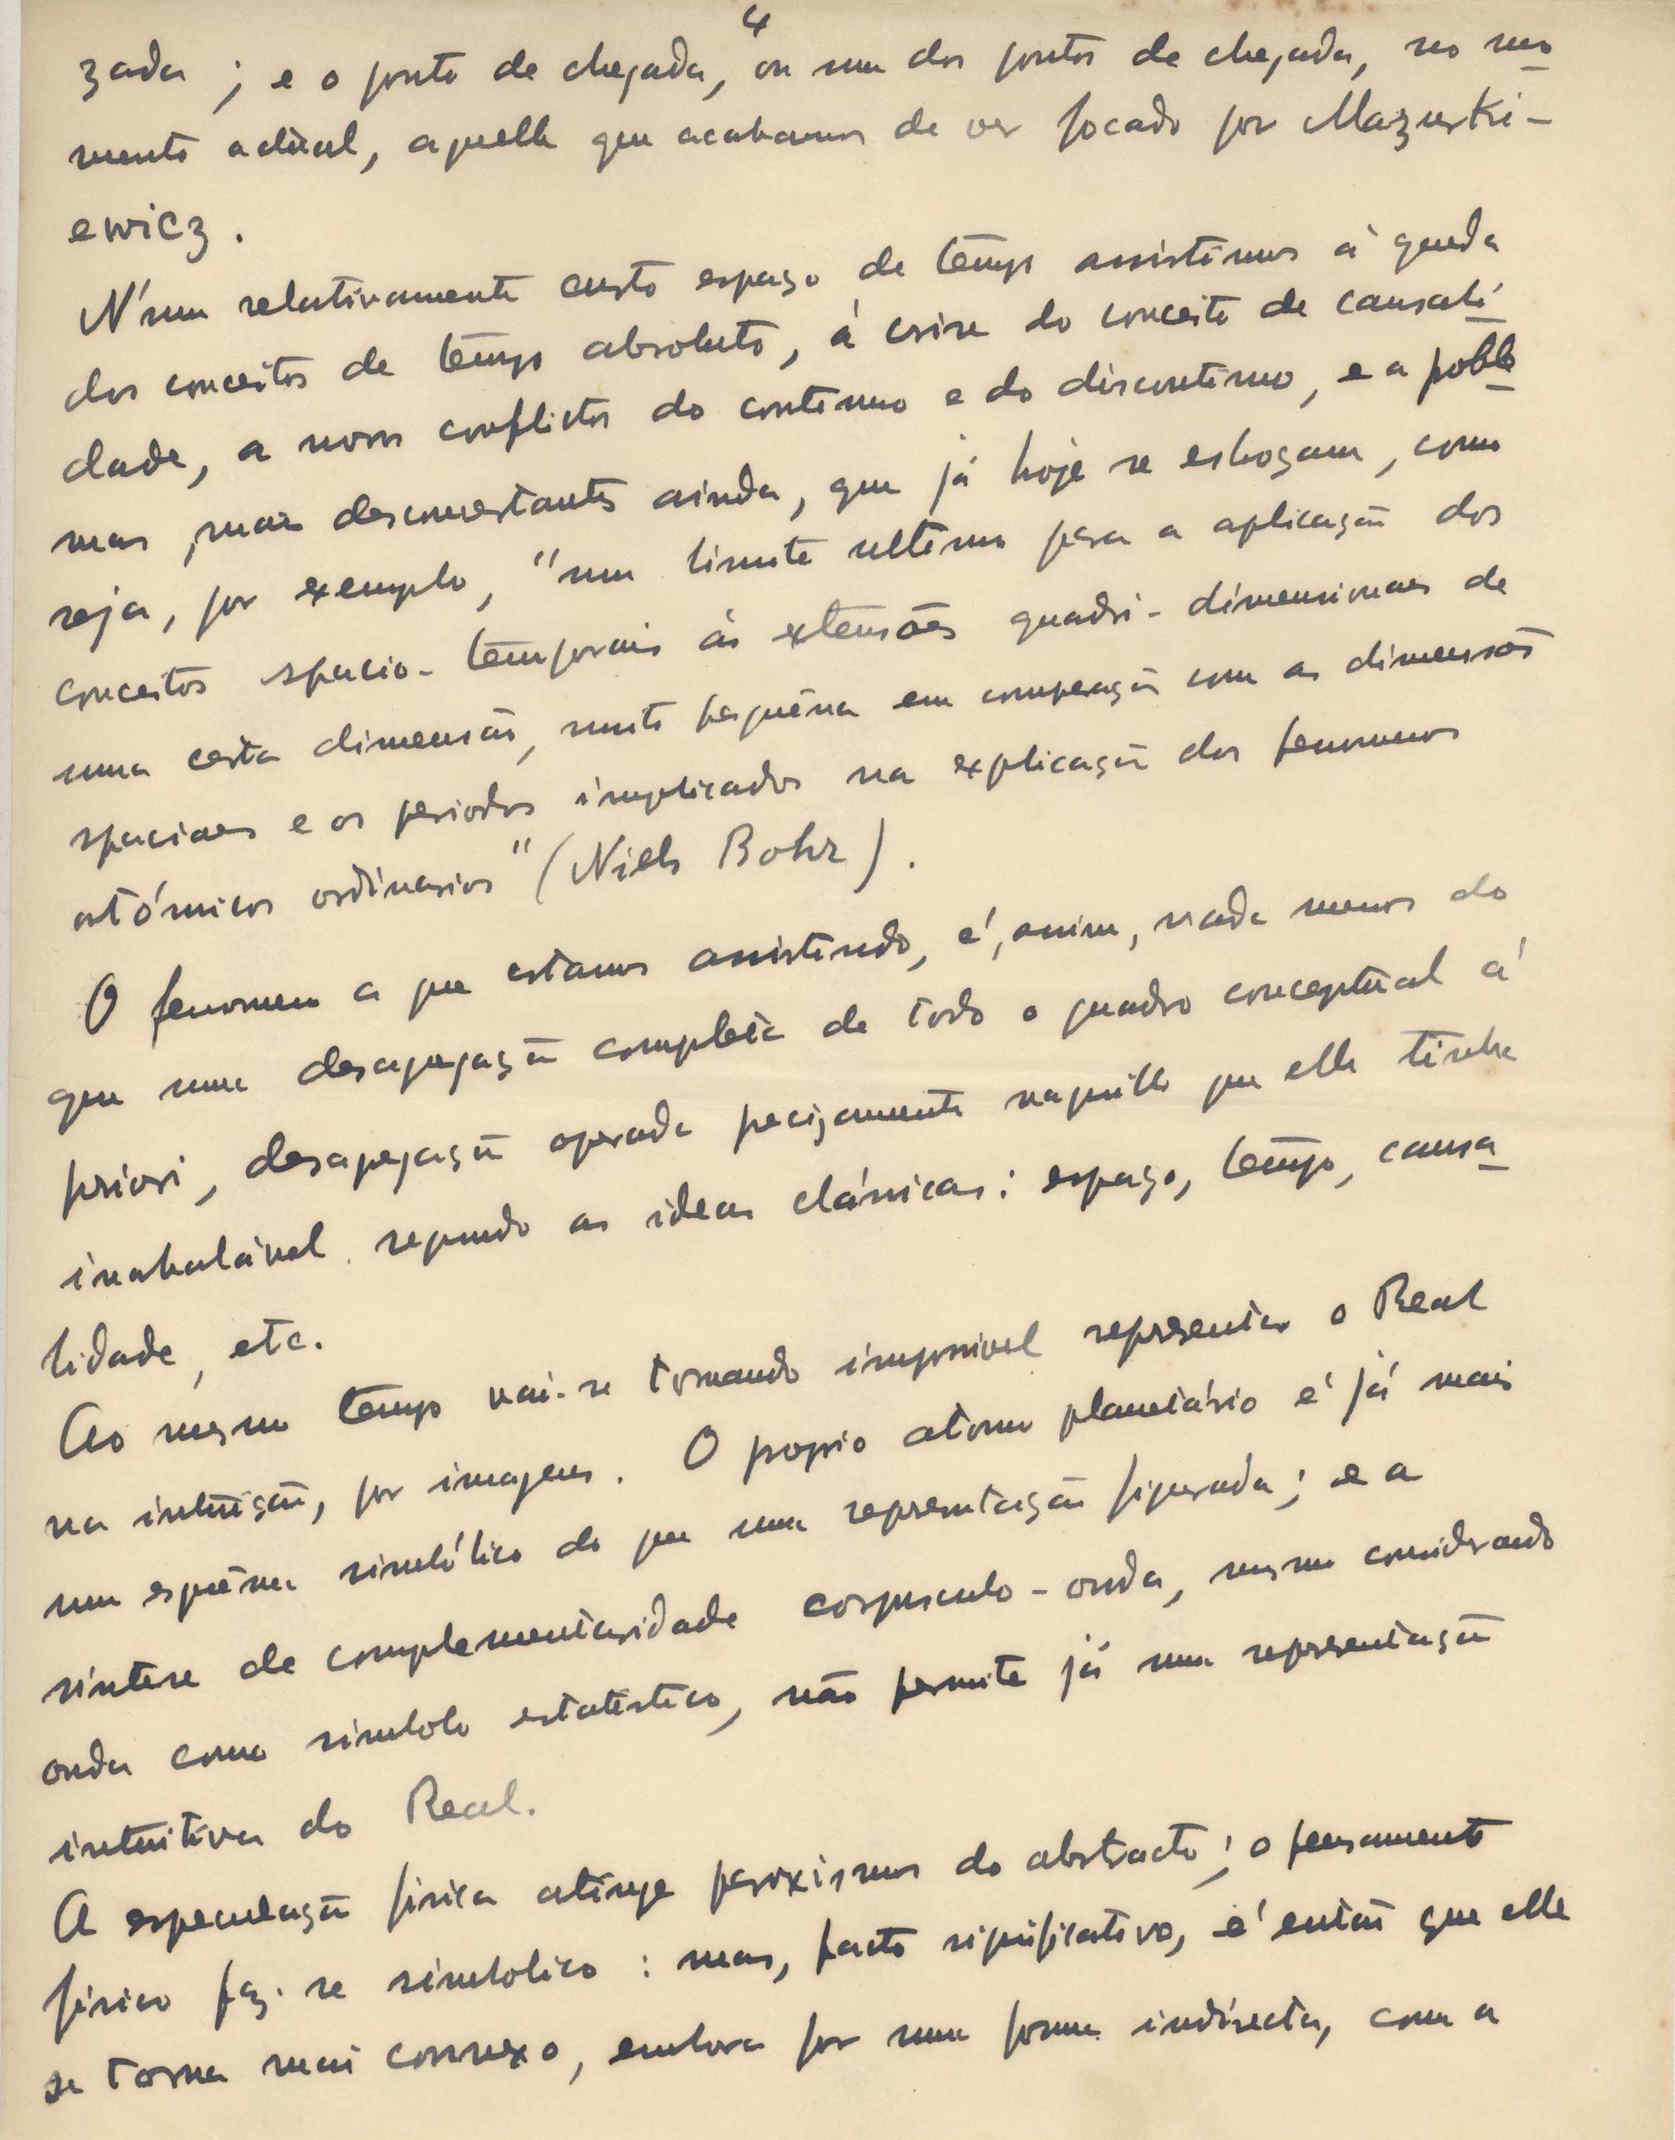 4
zada; e o ponto de chegada, ou um dos pontos de chegada, no mo
mento actual, aquelle que acabamos de ver focado por Mazurki-
ewicz.
N'um relativamente curto espaço de tempo assistimos á queda
dos conceitos de tempo absoluto, á crise do conceito de causali
dade, a novos conflictos do continuo e do discontinuo, e a proble
mas, mais desconcertantes ainda, que já hoje se esboçam, como
seja, por exemplo, "um limite ultimo para a aplicação dos
conceitos spacio-temporais ás extensões quadri-dimensionaes de
uma certa dimensão, muito pequena em comparação com as dimensões
spaciaes e os periodos implicados na explicação dos fenomenos
atómicos ordinarios" (Niels Bohr).
O fenomeno a que estamos assistindo, é, assim, nada menos do
que uma desagregação completa de todo o quadro conceptual á
priori, desagregação operada precizamente naquillo que elle tinha
inabalável segundo as ideas clássicas: espaço, tempo, causa
lidade, etc.
Ao mesmo tempo vai-se tornando impossivel representar o Real
na intuição, por imagens. O proprio atomo planetário é já mais
um esquêma simbólico do que uma representação figurada; e a
sintese de complementaridade corpusculo-onda, mesmo considerando
onda como simbolo estatistico, não permite já uma representação
intuitiva do Real.
A especulação fisica atinge paroxismos do abstracto; o pensamento
fisico faz-se simbolico: mas, facto significativo, é então que elle
se torna mais connexo, embora por uma forma indirecta, com a